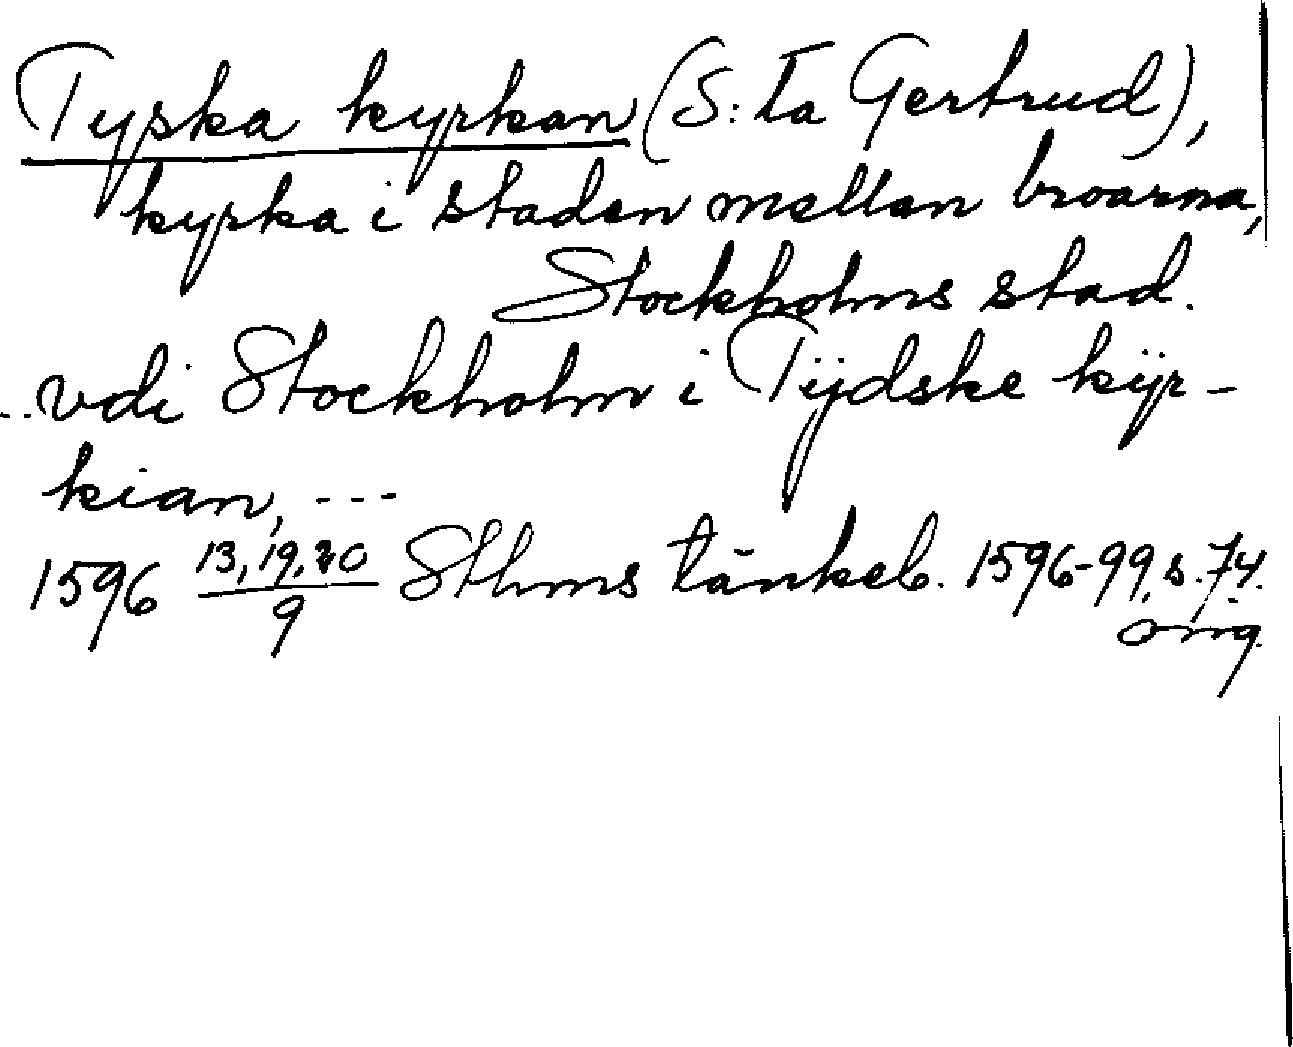 Tyska kyrkan (S:ta Gertrud),
kyrka i staden mellan broarna,
Stockholms stad.
...vdi Stockholm i Tÿdske kÿr-
kian, ---
1596 13,19,20/9 Sthms tänkeb. 1596-99, s. 74.
orig.